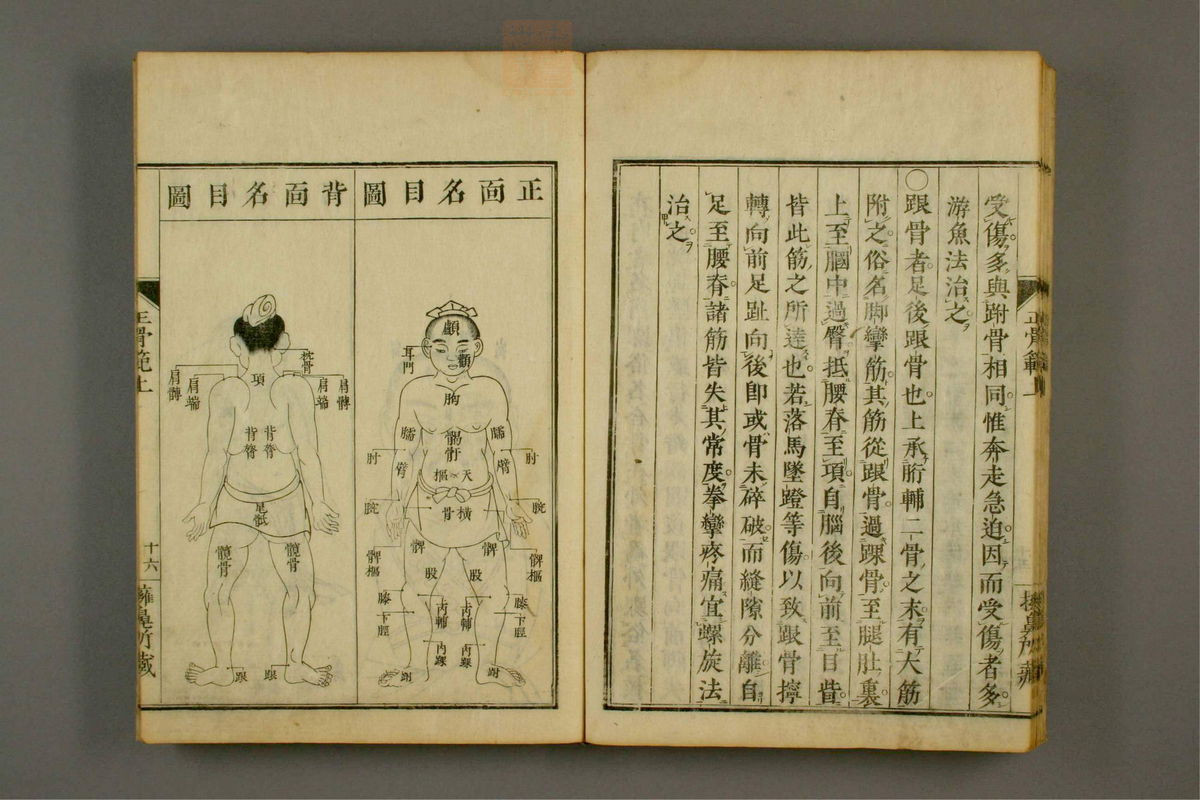 受傷多與跗骨相同惟奔走急迫因而受傷者多
游魚法治之
○跟骨者足後跟骨也上承䯒輔二骨之末有大筋
附之俗名脚攣筋其筋從跟骨過踝骨至腿肚裏
上至膕中過臀抵腰脊至項自腦後向前至目眥
皆此筋之所達也若落馬墜蹬等傷以致跟骨擰
轉向前足趾向後卽或骨未碎破而縫隙分離自
足至腰脊諸筋皆失其常度拳攣疼痛宜螺旋法
治之
正骨範上
正面名目圖
顱
顴
耳門
胸
臑
臑
𩩲骬
肘
臂
臂
肘
天樞
腕
橫骨
腕
髀
髀
髀樞
髀樞
股
股
膝
膝
下脛
下脛
內輔
內輔
內踝
內踝
跗
跗
背面名目圖
枕骨
項
肩髆
肩端
肩端
肩髆
背膂
背膂
尾骶
髖骨
髖骨
跟
跟
正骨範上
十六
擁鼻所藏